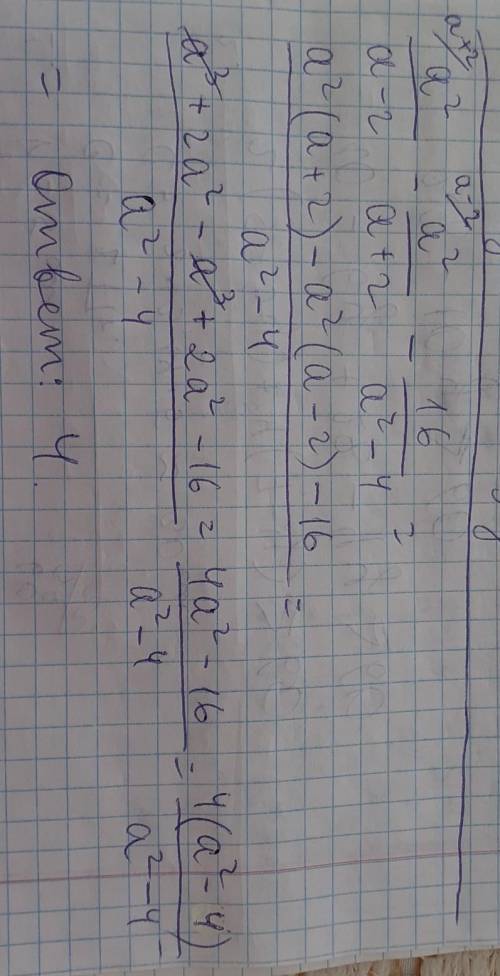 a+2/ a²/(a-2) - a-2/ a²/(a+2) - 16/(a²-4) =
(a²(a+2) - a²(a-2) - 16)/(a²-4) =
(a³ + 2a² - a³ + 2a² - 16)/(a²-4) = (4a² - 16)/(a²-4) = 4(a²-4)/(a²-4) =
= Ответ: 4.